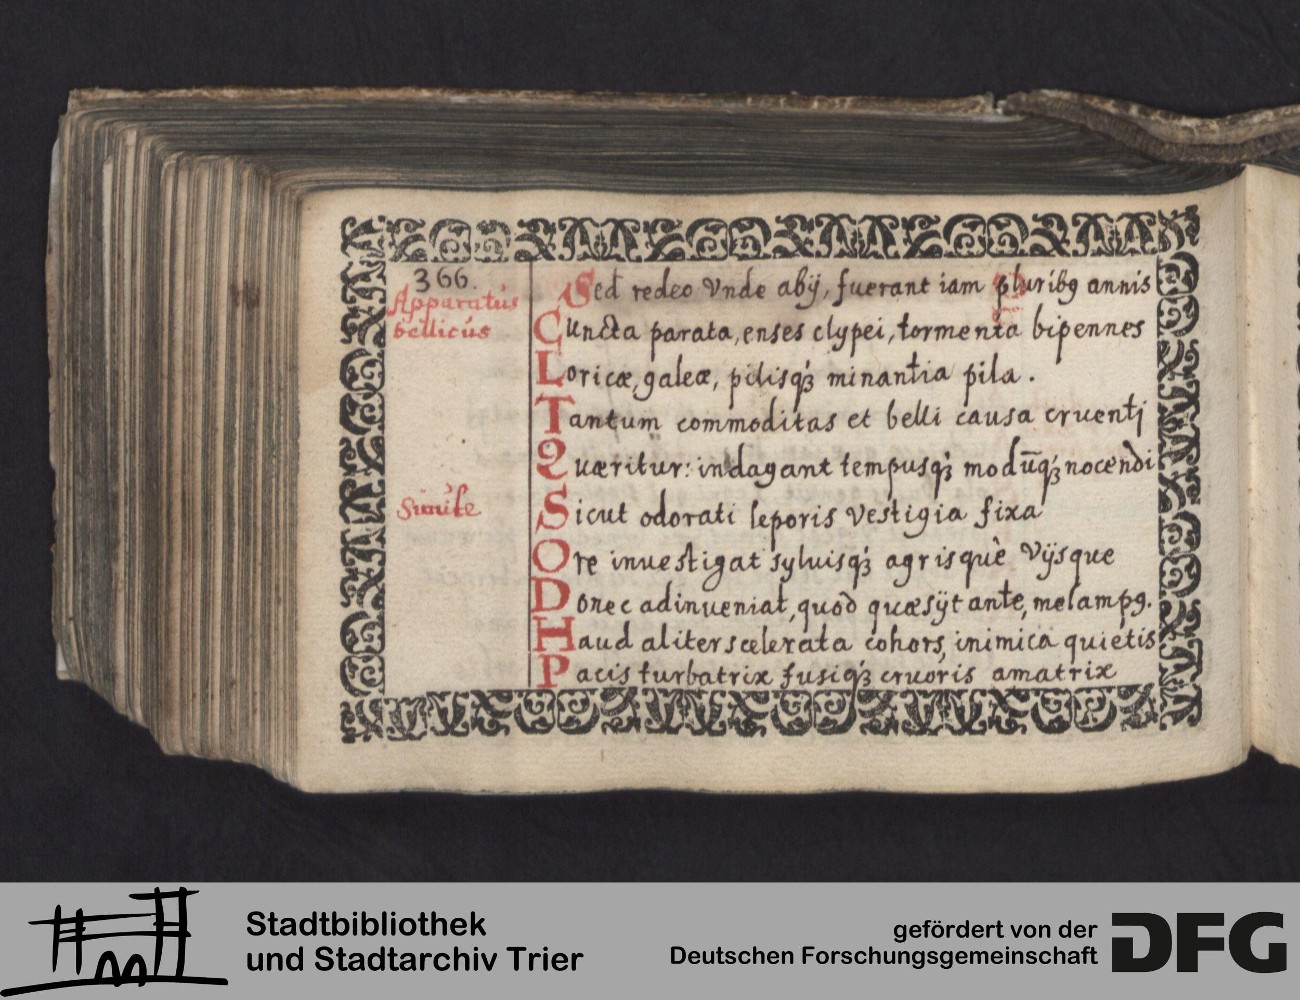 366.
Apparatus
bellicus
Sed redeo Vnde abij, fuerant iam pluribꝯ annis
Cuncta parata, enses clypei, tormenta bipennes
Loricæ, galeæ, pilisq́ꝫ minantia pila.
Tantum commoditas et belli causa cruentj
Quæritur: indagant tempusq́ꝫ modūq́ꝫ nocendi
Simile
Sicut odorati leporis Vestigia fixa
Ore inuestigat syluisq́ꝫ agrisquè Vijsque
Donec adinueniat, quod quæsijt ante, melampꝯ.
Haud aliter scelerata cohors, inimica quietis
Pacis turbatrix fusiq́ꝫ cruoris amatrix
Stadtbibliothek
und Stadtarchiv Trier
gefördert von der
Deutschen Forschungsgemeinschaft
DFG